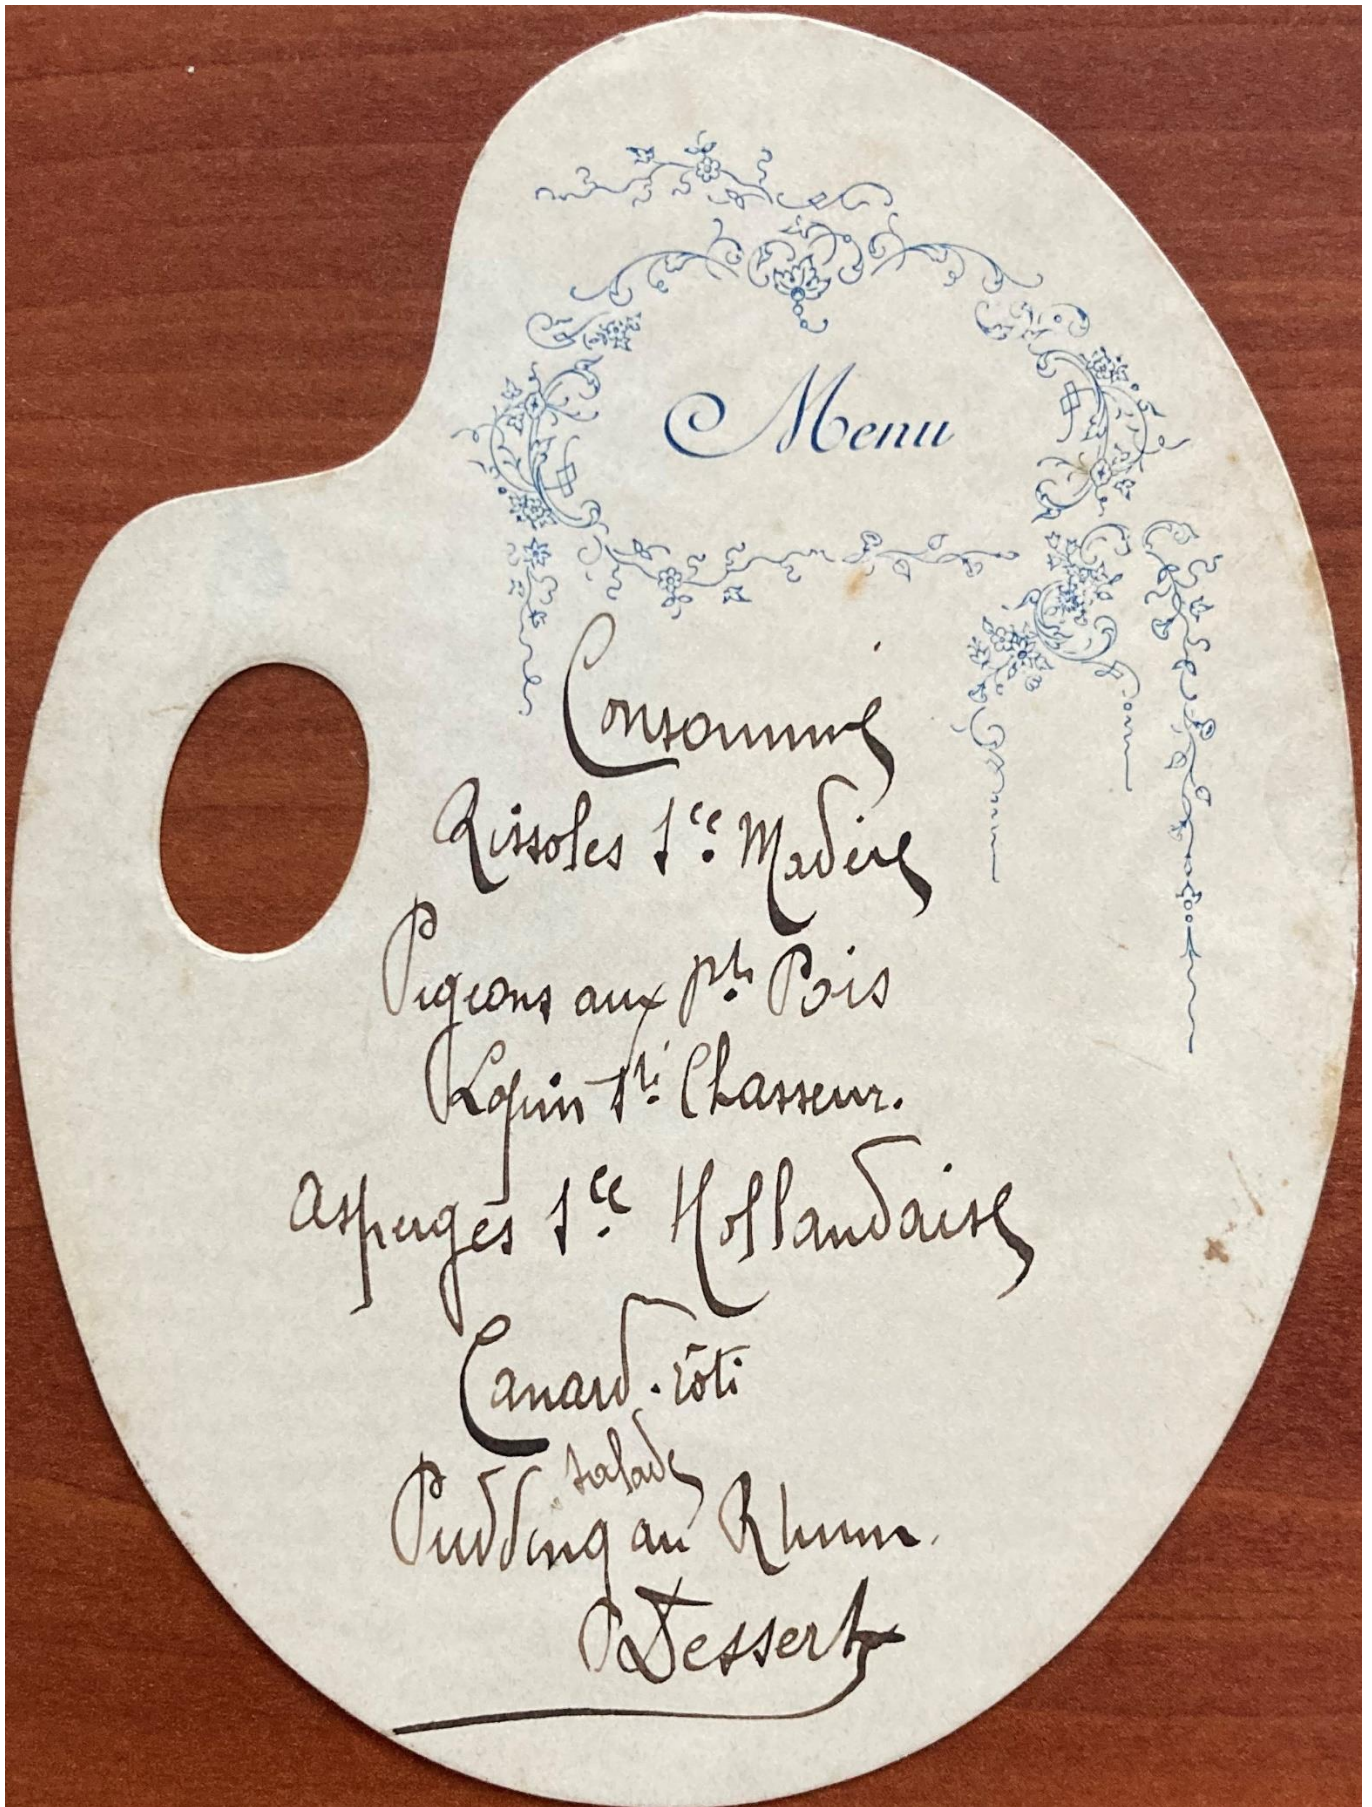 Menu
Consommé
Rissoles Sce Madère
Pigeons aux pts Pois
Lapin Sté Chasseur.
Asperges Sce Hollandaise
Canard rôti
salade
Pudding au Rhum
Dessert